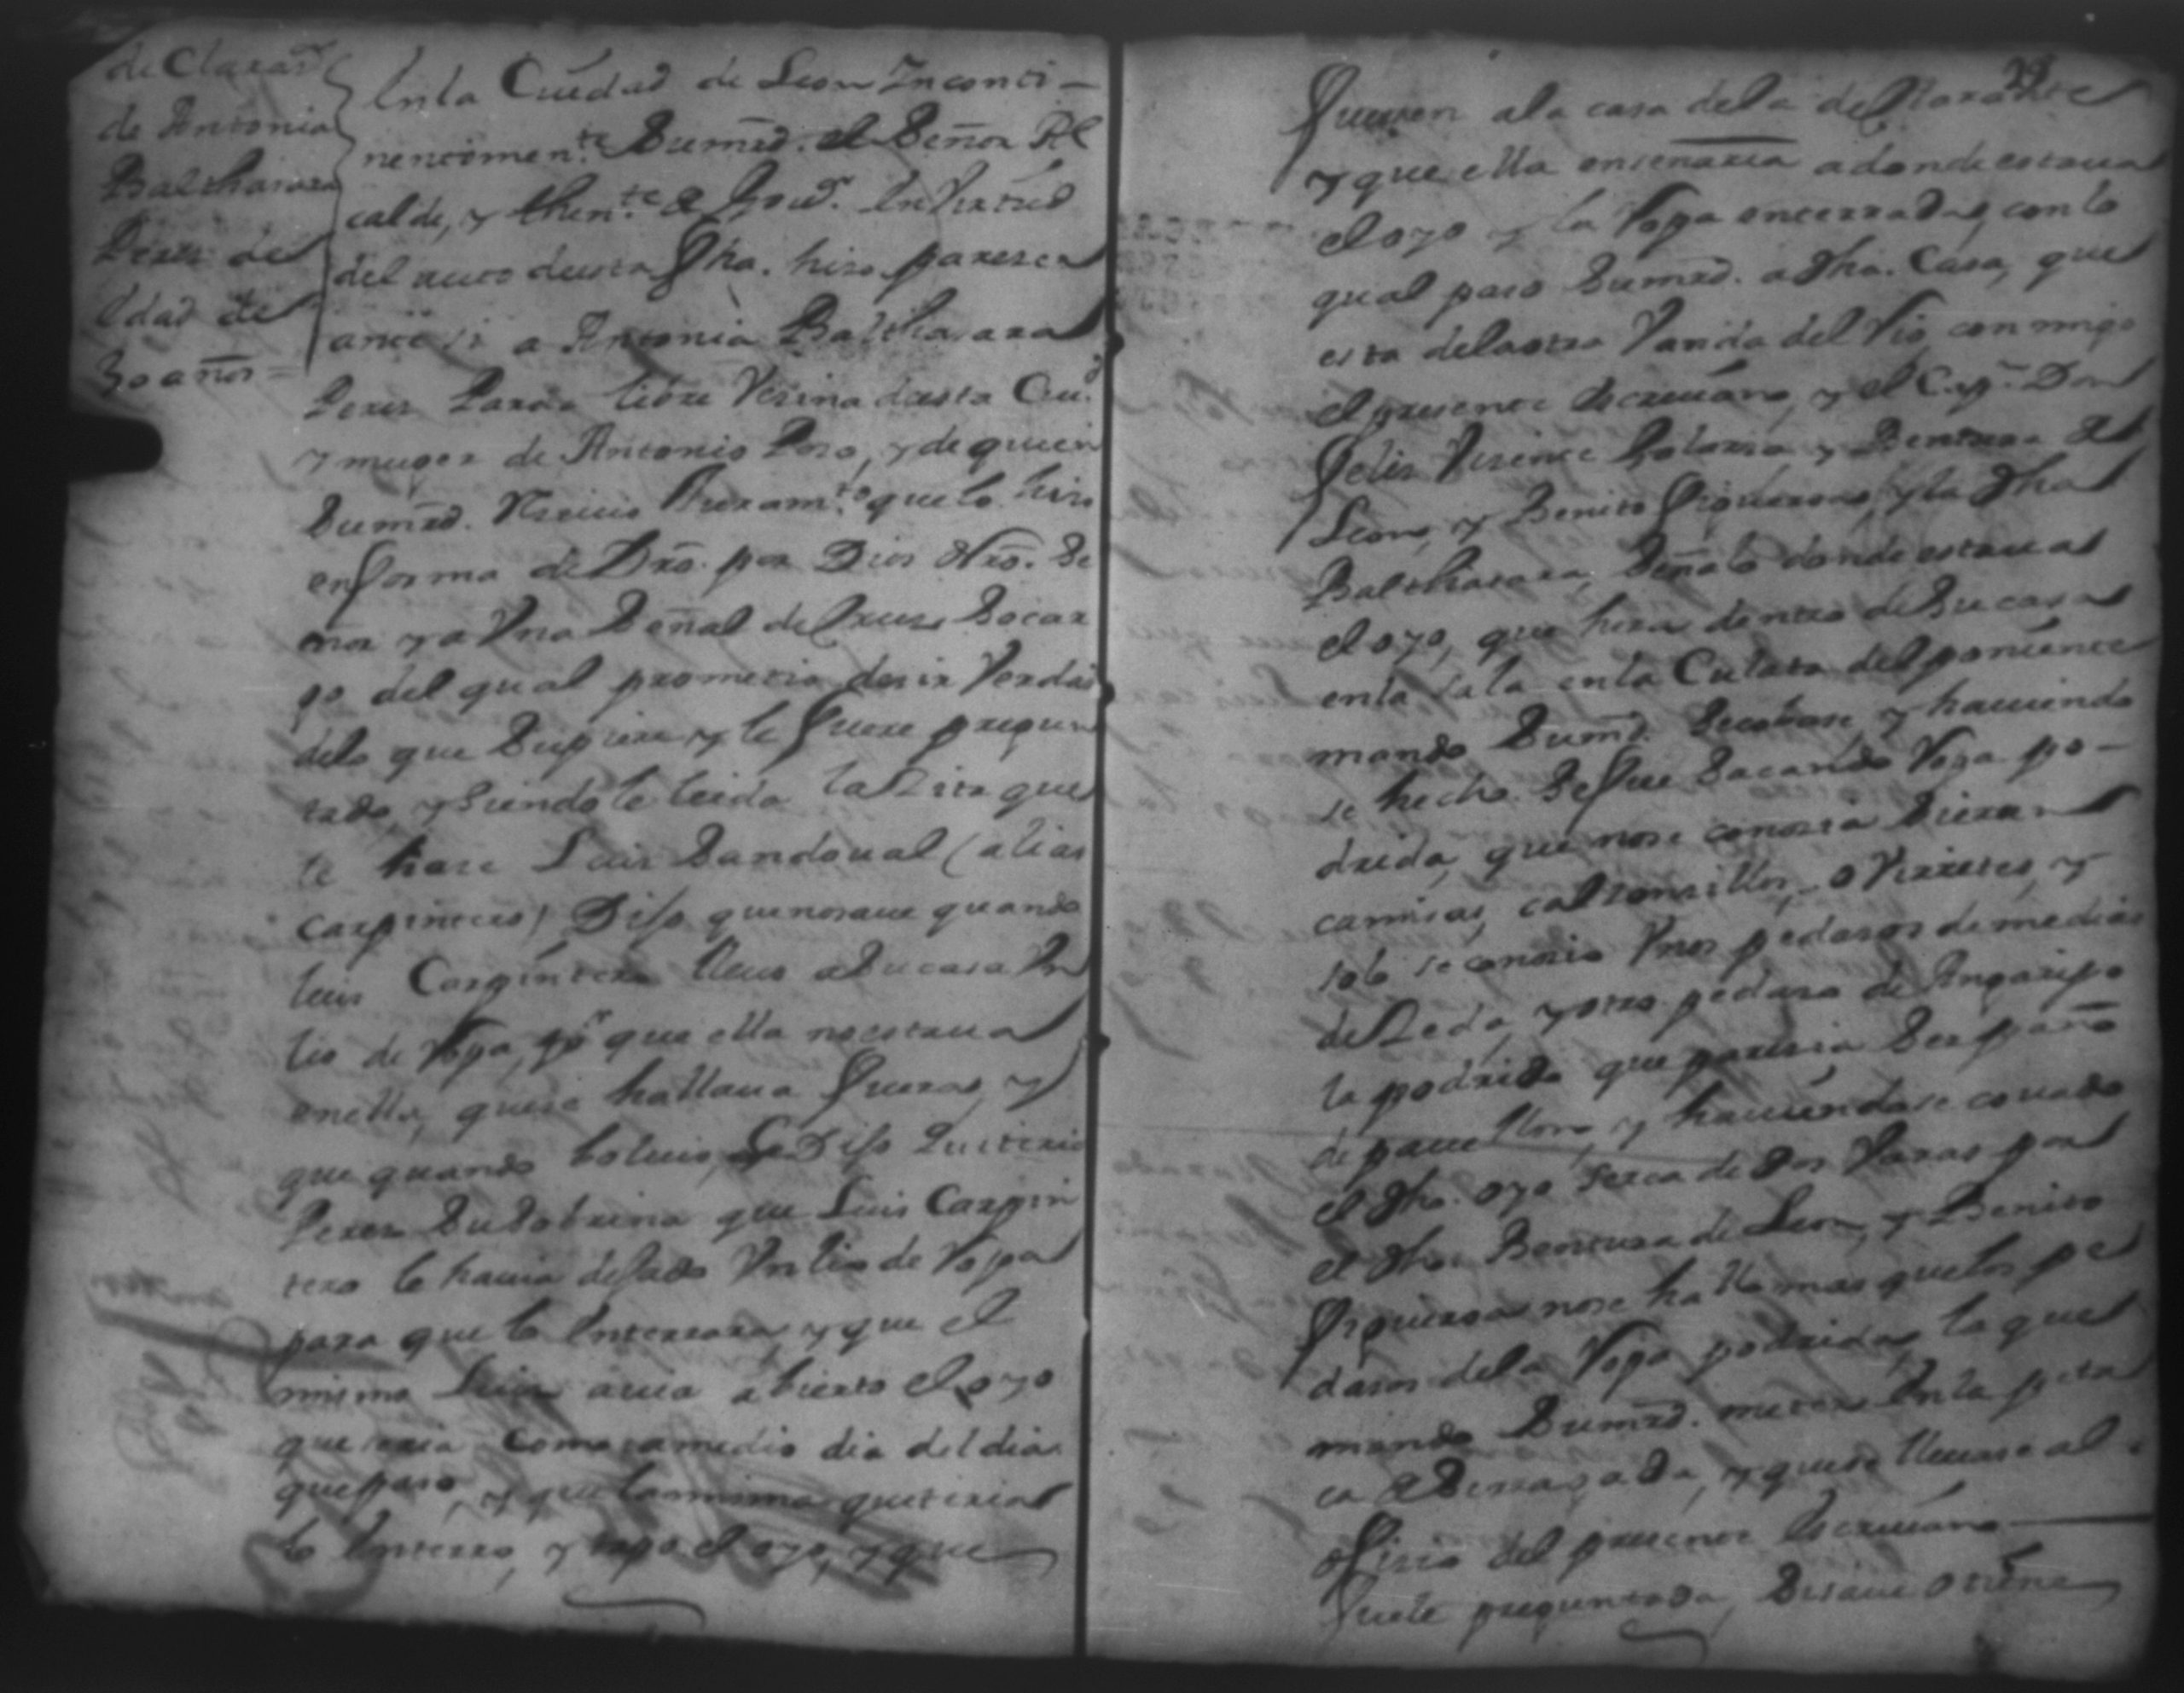 de Claraon
de Antonia
Balthasara
Peres de
Edad de
30 años =
En la Ciudad de Leon Inconti-
nentemen.te Sumrd. el Señor Al
calde, y then.te de Gov.r En Virtud
del auto de esta fha. hiso pareser
ante si a Antonia Balthasara
Peres Parda libre Vesina de esta Ciu.d
y muger de Antonio Poso, y de quien
Sumrd. Resiuio Juram.to que lo hiso
en forma de Dro. por Dios Nro. Se
ñor y a Vna Señal de Cruz So car
go del qual prometio desir Verdad
delo que Supiere y le fuere pregun
tado y Siendole leida la Sita que
le hase Luis Sandoual (alias
Carpintero) Dijo que no saue quando
Luis Carpintero lleuo a Su casa Vn
lio de Ropa, p.r que ella no estaua
en ella, que se hallaua fuera, y
que quando boluio, le Dijo Quiteria
Peres Su Sobrina que Luis Carpin
tero le hauia dejado Vn lio de Ropa
para que lo Enterrara, y que el
mismo Luis auia abierto el oyo
que seria como a medio dia del dia
que paso, y que la misma quiteria
lo Enterro, y tapo el oyo, y que
29
fuesen ala casa dela declarante
y que ella enseñaria adonde estaua
el oyo y la Ropa enterrada, con lo
qual paso Sumrd. a dha. Casa, que
esta dela otra Vanda del Rio con migo
el presente Escriuano, y el Cap.n Don
Felis Visente Galarsa y Bentura de
Leon, y Benito Figueroa, y la dha
Balthasara, Señalo donde estaua
el oyo, que hera dentro de Su casa
en la sala en la Culata del poniente
mando Sumrd. Secabase, y hauiendo
se hecho Se fue Sacando Ropa po-
drida, que no se conosia Si eran
camisas, calsonsillos, o Virretes, y
solo se conosio Vnos pedasos de medias
de Seda, y otro pedaso de Angaripo
la podrido que paresia Ser paño
de pauellon, y hauiendose cauado
el dho. oyo serca de dos Varas por
el dho. Bentura de Leon, y Benito
Figueroa no se hallo mas que los pe
dasos dela Ropa podrida, la que
mando Sumrd. meter En la peta
ca , y que se lleuase al
ofisio del presente Escriuano
fuele preguntada, Si saue o tiene